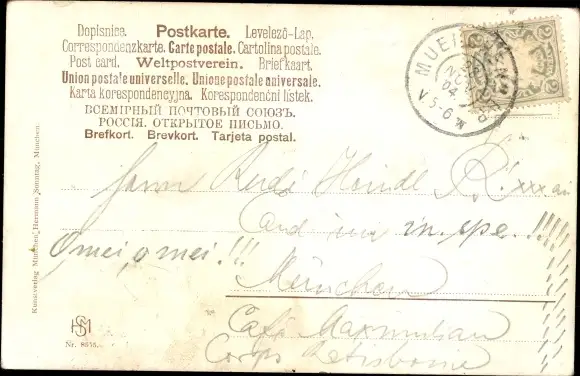 Dopisnice. Postkarte. Levelező-Lap.
Correspondenzkarte. Carte postale. Cartolina postale.
Post card. Weltpostverein. Briefkaart.
Union postale universelle. Unione postale universale.
Karta korespondencyjna. Korespondenční lístek.
ВСЕМІРНЫЙ ПОЧТОВЫЙ СОЮЗЪ.
РОССІЯ. ОТКРЫТОЕ ПИСЬМО.
Brefkort. Brevkort. Tarjeta postal.
NOV
04
V 5-6
Herrn Rudi Heindl
Cand in. spe.!!!!
O mei, o mei!!!
München
Café Maximilian
Corps Ratisbonia
Kunstverlag München Hermann Sonntag, München.
HSM